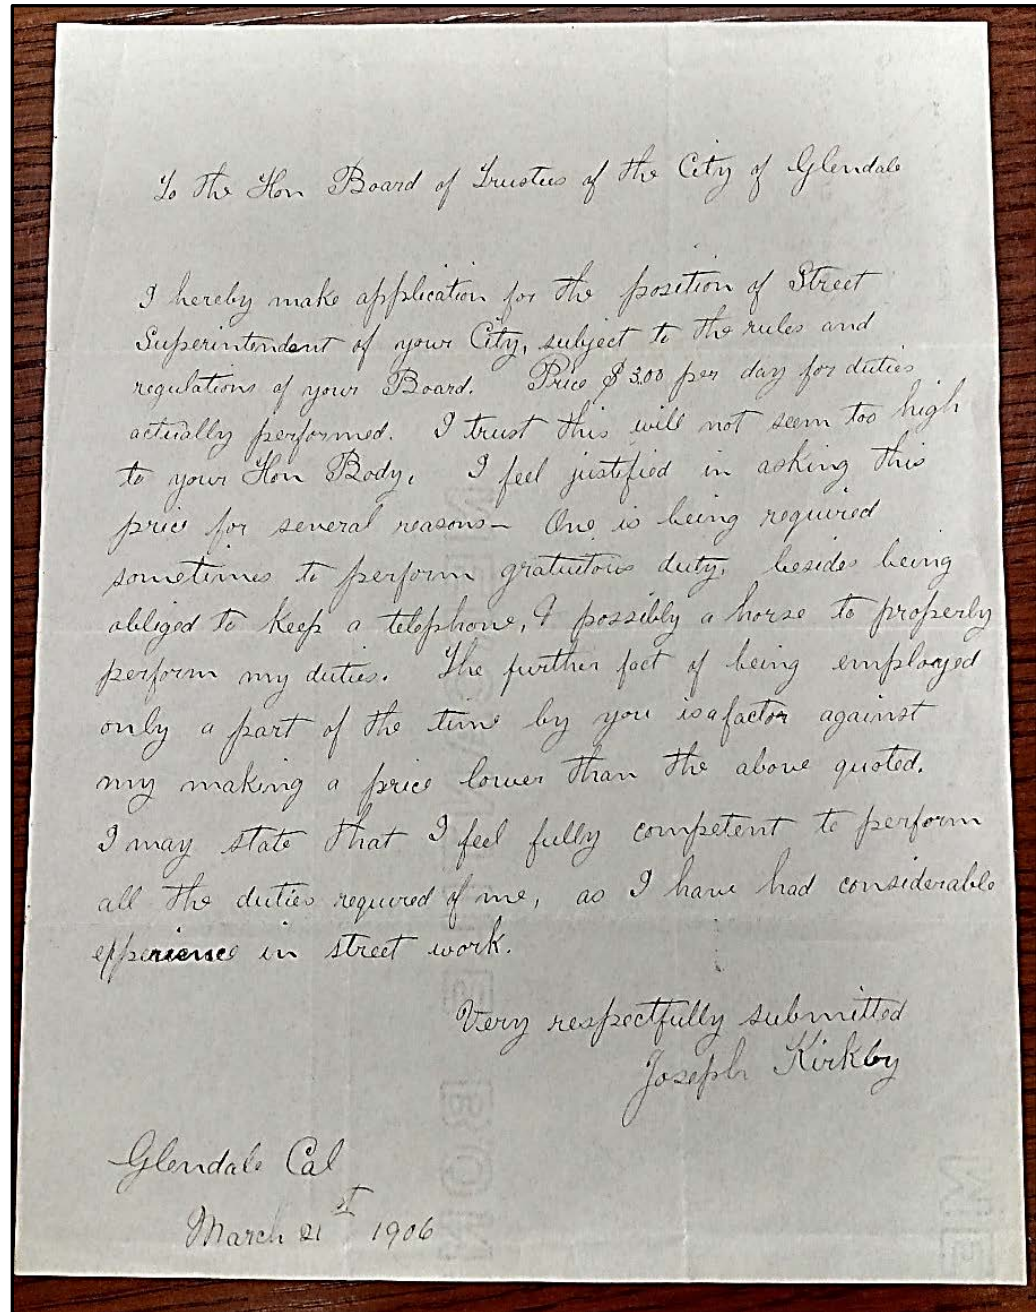 To the Hon Board of Trustees of the City of Glendale
I hereby make application for the position of Street
Superintendent of your City, subject to the rules and
regulations of your Board. Price $3.00 per day for duties
actually performed. I trust this will not seem too high
to your Hon Body. I feel justified in asking this
price for several reasons— One is being required
sometimes to perform gratuitous duty, besides being
obliged to keep a telephone, & possibly a horse to properly
perform my duties. The further fact of being employed
only a part of the time by you is a factor against
my making a price lower than the above quoted.
I may state that I feel fully competent to perform
all the duties required of me, as I have had considerable
experience in street work.
Very respectfully submitted
Joseph Kirkby
Glendale Cal
March 21st 1906